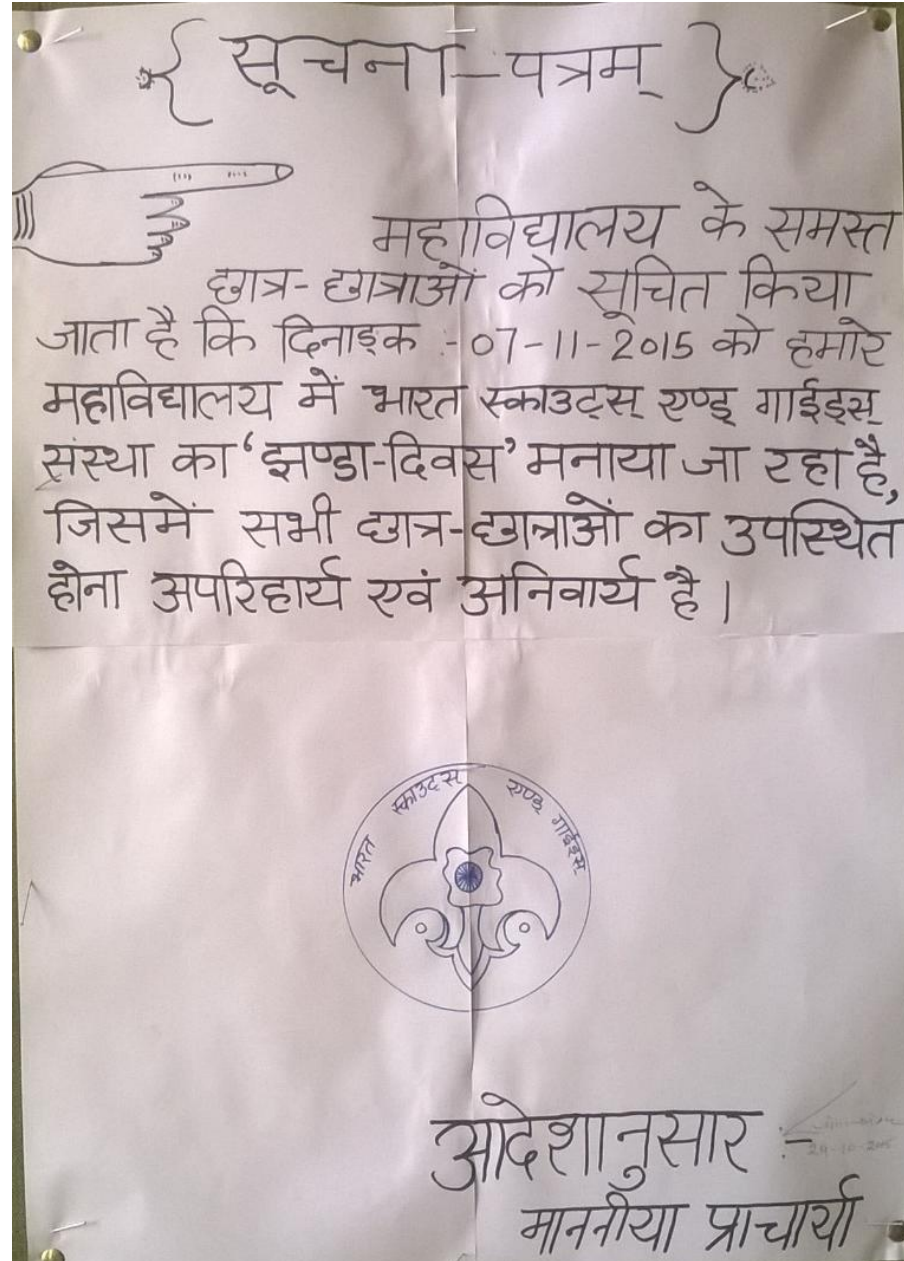 सूचना-पत्रम्
महाविद्यालय के समस्त
छात्र-छात्राओं को सूचित किया
जाता है कि दिनाङ्क :-07-11-2015 को हमारे
महाविद्यालय में भारत स्काउट्स् एण्ड् गाईड्स्
संस्था का ‘झण्डा-दिवस’ मनाया जा रहा है,
जिसमें सभी छात्र-छात्राओं का उपस्थित
होना अपरिहार्य एवं अनिवार्य है।
भारत स्काउट्स् एण्ड् गाईड्स्
आदेशानुसार :-
माननीया प्राचार्या